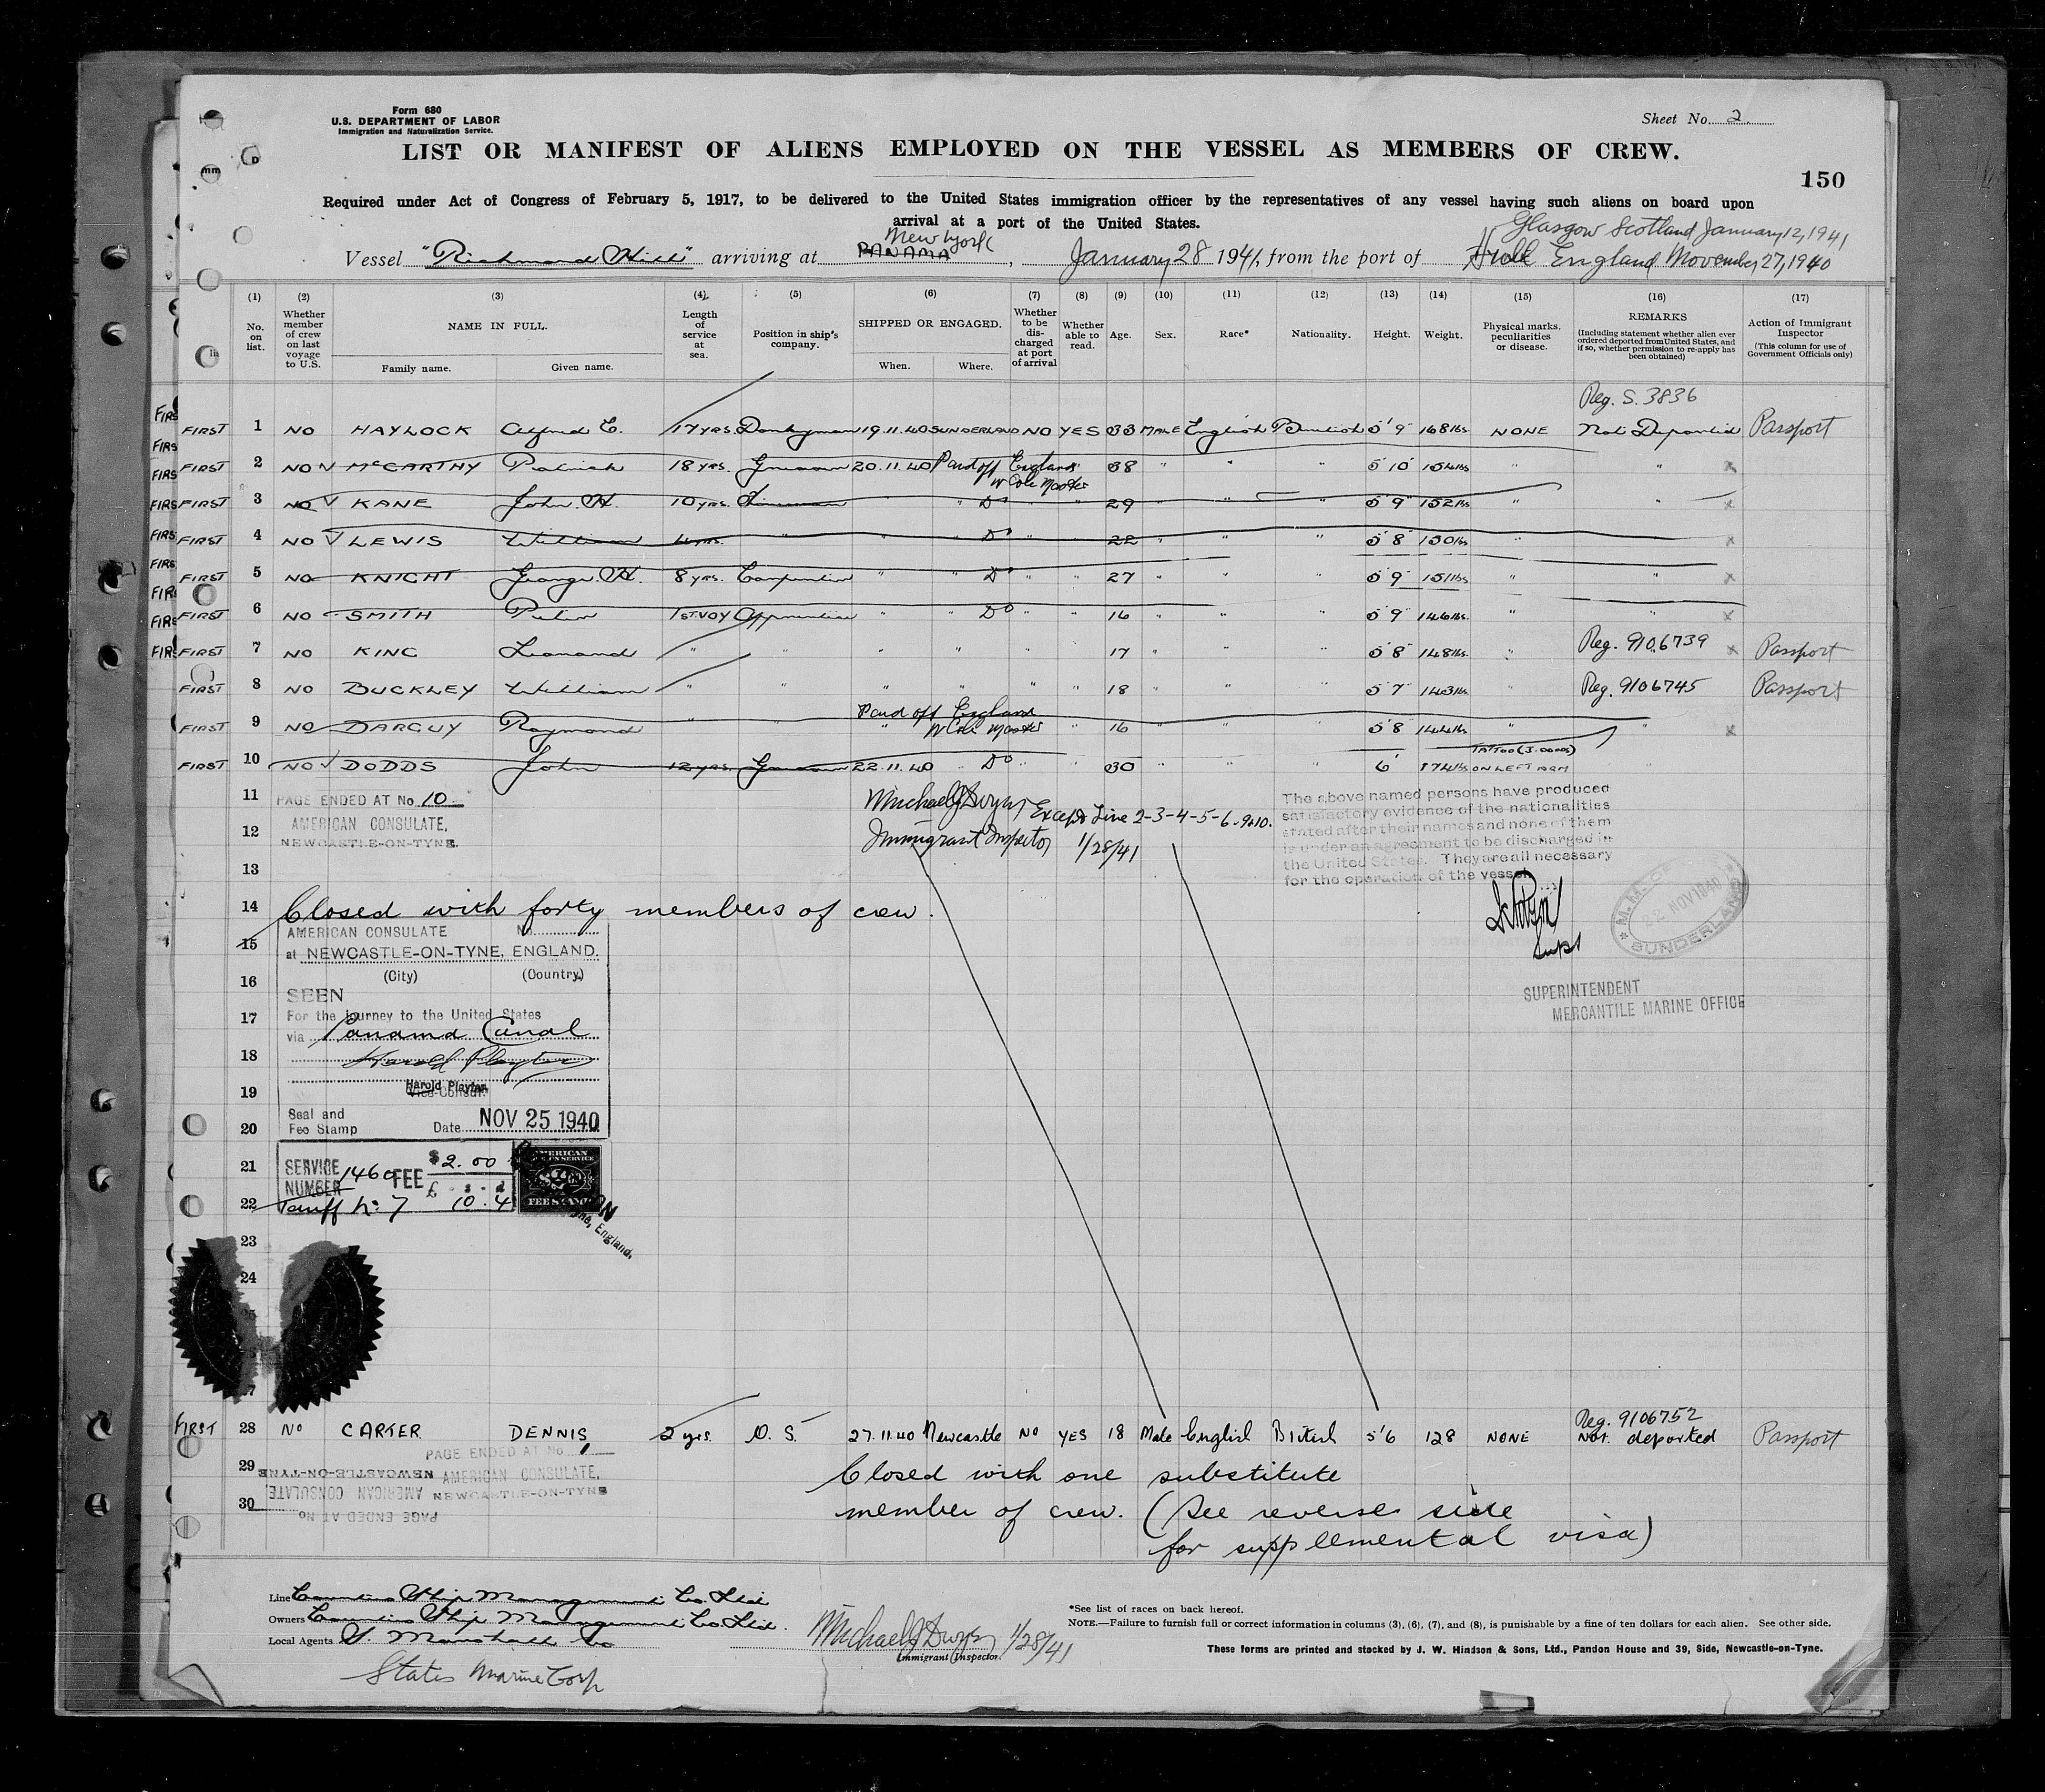 Form 680
U.S. DEPARTMENT OF LABOR
Immigration and Naturalization Service.
Sheet No. 2
LIST OR MANIFEST OF ALIENS EMPLOYED ON THE VESSEL AS MEMBERS OF CREW.
150
Required under Act of Congress of February 5, 1917, to be delivered to the United States immigration officer by the representatives of any vessel having such aliens on board upon
arrival at a port of the United States.
Glasgow Scotland January 12, 1941
New York
Vessel "Richmond Hill" arriving at PANAMA, January 28 1941, from the port of Hull England November 27, 1940
(1) (2) (3) (4) (5) (6) (7) (8) (9) (10) (11) (12) (13) (14) (15) (16) (17)
No. on list. Whether member of crew on last voyage to U.S. NAME IN FULL. Family name. Given name. Length of service at sea. Position in ship's company. SHIPPED OR ENGAGED. When. Where. Whether to be discharged at port of arrival Whether able to read. Age. Sex. Race* Nationality. Height. Weight. Physical marks, peculiarities or disease. REMARKS (Including statement whether alien ever ordered deported from United States, and if so, whether permission to re-apply has been obtained) Action of Immigrant Inspector (This column for use of Government Officials only)
Reg. S. 3836
FIRST 1 NO HAYLOCK Alfred C. 17 YRS. Donkeyman 19.11.40 SUNDERLAND NO YES 33 MALE English British 5'9" 168 lbs NONE Not Deported Passport
FIRST 2 NO √ McCARTHY Patrick 18 YRS. Greaser 20.11.40 Paid off England " 38 " " " 5'10" 154 lbs " " x
W Cole Master
FIRST 3 NO √ KANE John H. 10 YRS. Fireman " " Do " " 29 " " " 5'9" 152 lbs " " x
FIRST 4 NO √ LEWIS William 4 yrs. " " Do 22 " " " 5'8" 150 lbs " x
FIRST 5 NO KNIGHT George H. 8 YRS. Carpenter " " Do " " 27 " " " 5'9" 151 lbs " " x
FIRST 6 NO SMITH Peter 1ST VOY Apprentice " " Do " " 16 " " " 5'9" 146 lbs. " " x
FIRST 7 NO KING Leonard " " " " " " 17 " " " 5'8" 148 lbs. " Reg. 9106739 x Passport
FIRST 8 NO BUCKLEY William " " " " " " 18 " " " 5'7" 143 lbs " Reg. 9106745 Passport
Paid off England
FIRST 9 NO DARGUY Raymond " " " W Cole Master " 16 " " " 5'8" 144 lbs " " x
FIRST 10 NO √ DODDS John 12 yrs. Greaser 22.11.40 Do " " 30 " " " 6' 174 lbs TATTOO (J. DODDS) ON LEFT ARM "
11 PAGE ENDED AT No 10
AMERICAN CONSULATE,
NEWCASTLE-ON-TYNE.
Michael J Dwyer Except Line 2-3-4-5-6-9&10.
12 Immigrant Inspector 1/28/41
The above named persons have produced
satisfactory evidence of the nationalities
stated after their names and none of them
is under an agreement to be discharged in
the United States. They are all necessary
for the operation of the vessel.
13
14 Closed with forty members of crew.
Supt
M.M.
22 NOV 1940
SUNDERLAND
SUPERINTENDENT
MERCANTILE MARINE OFFICE
15 AMERICAN CONSULATE No.
at NEWCASTLE-ON-TYNE, ENGLAND.
(City) (Country)
16 SEEN
17 For the journey to the United States
via Panama Canal
18 Harold Playter
Harold Playter
19 Vice-Consul
Seal and
20 Fee Stamp Date NOV 25 1940
21 SERVICE NUMBER 1460 FEE $2.00
£ - s - d
22 Tariff No. 7 10.4
AMERICAN
FEE STAMP
England.
23
24
FIRST 28 No CARTER DENNIS 2 yrs. O.S. 27.11.40 Newcastle NO YES 18 Male English British 5'6 128 NONE Reg. 9106752 Not. deported Passport
PAGE ENDED AT No. 1
29 AMERICAN CONSULATE,
NEWCASTLE-ON-TYNE
30 PAGE ENDED AT No
AMERICAN CONSULATE
NEWCASTLE-ON-TYNE
Closed with one substitute
member of crew. (See reverse side
for supplemental visa)
Line Counties Ship Management Co. Ltd
Owners Counties Ship Management Co. Ltd.
Local Agents S. Marshall Co
States Marine Corp
Michael J Dwyer 1/28/41
Immigrant Inspector
*See list of races on back hereof.
NOTE.—Failure to furnish full or correct information in columns (3), (6), (7), and (8), is punishable by a fine of ten dollars for each alien. See other side.
These forms are printed and stocked by J. W. Hindson & Sons, Ltd., Pandon House and 39, Side, Newcastle-on-Tyne.